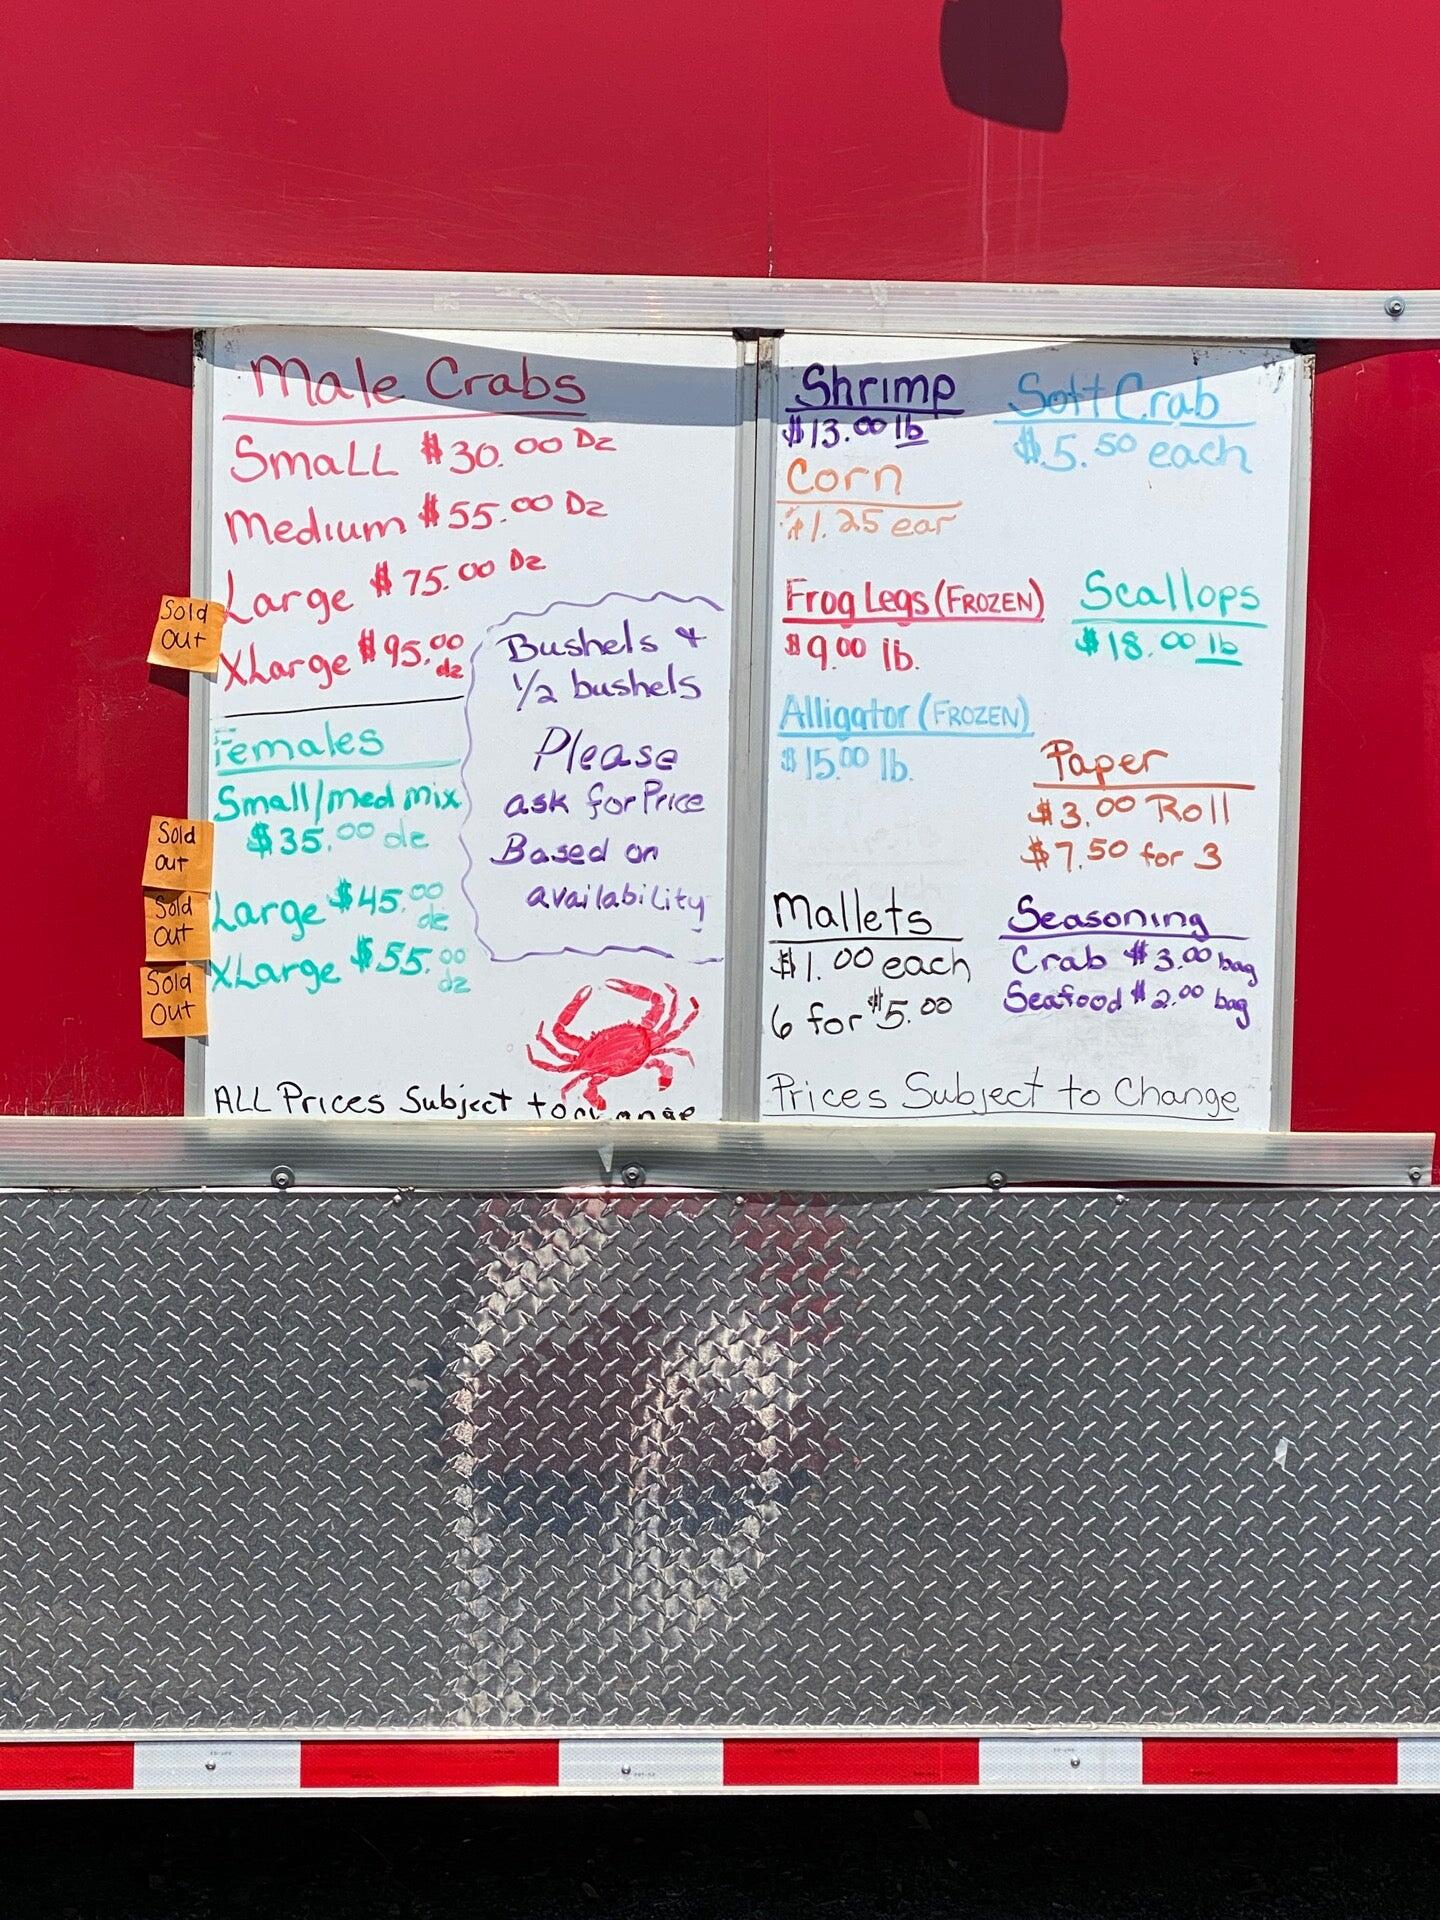 Male Crabs
Small $30.00 Dz
Medium $55.00 Dz
Large $75.00 Dz
Sold
Out
XLarge $95.00
dz
Females
Small/med mix
$35.00 dz
Sold
out
Large $45.00
dz
Sold
Out
XLarge $55.00
dz
Sold
Out
Bushels &
1/2 bushels
Please
ask for Price
Based on
availability
ALL Prices Subject to
Shrimp
$13.00 lb
Soft Crab
$5.50 each
Corn
$1.25 ear
Frog Legs (FROZEN)
$9.00 lb.
Scallops
$18.00 lb
Alligator (FROZEN)
$15.00 lb.
Paper
$3.00 Roll
$7.50 for 3
Mallets
$1.00 each
6 for $5.00
Seasoning
Crab $3.00 bag
Seafood $2.00 bag
Prices Subject to Change